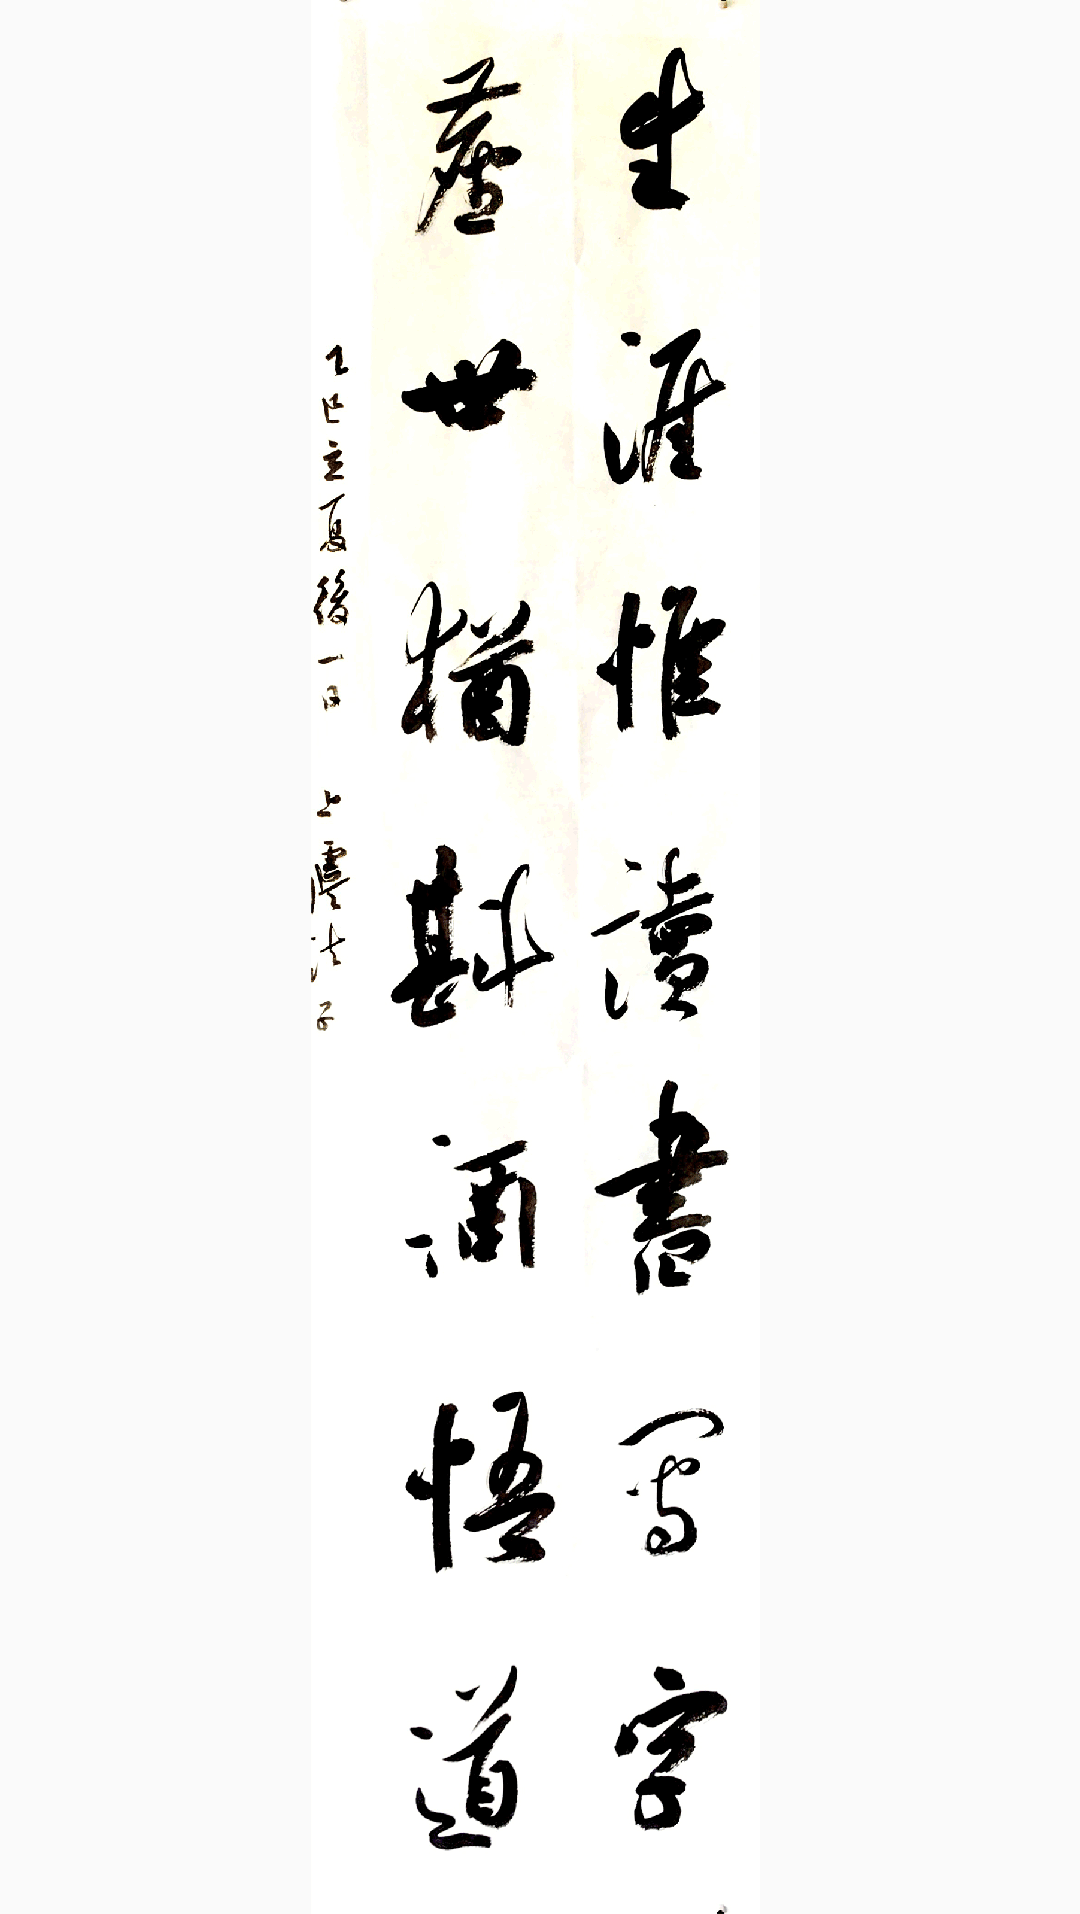 生涯惟讀書寫字
塵世猶斟酒悟道
乙巳立夏後一日 上虞法子